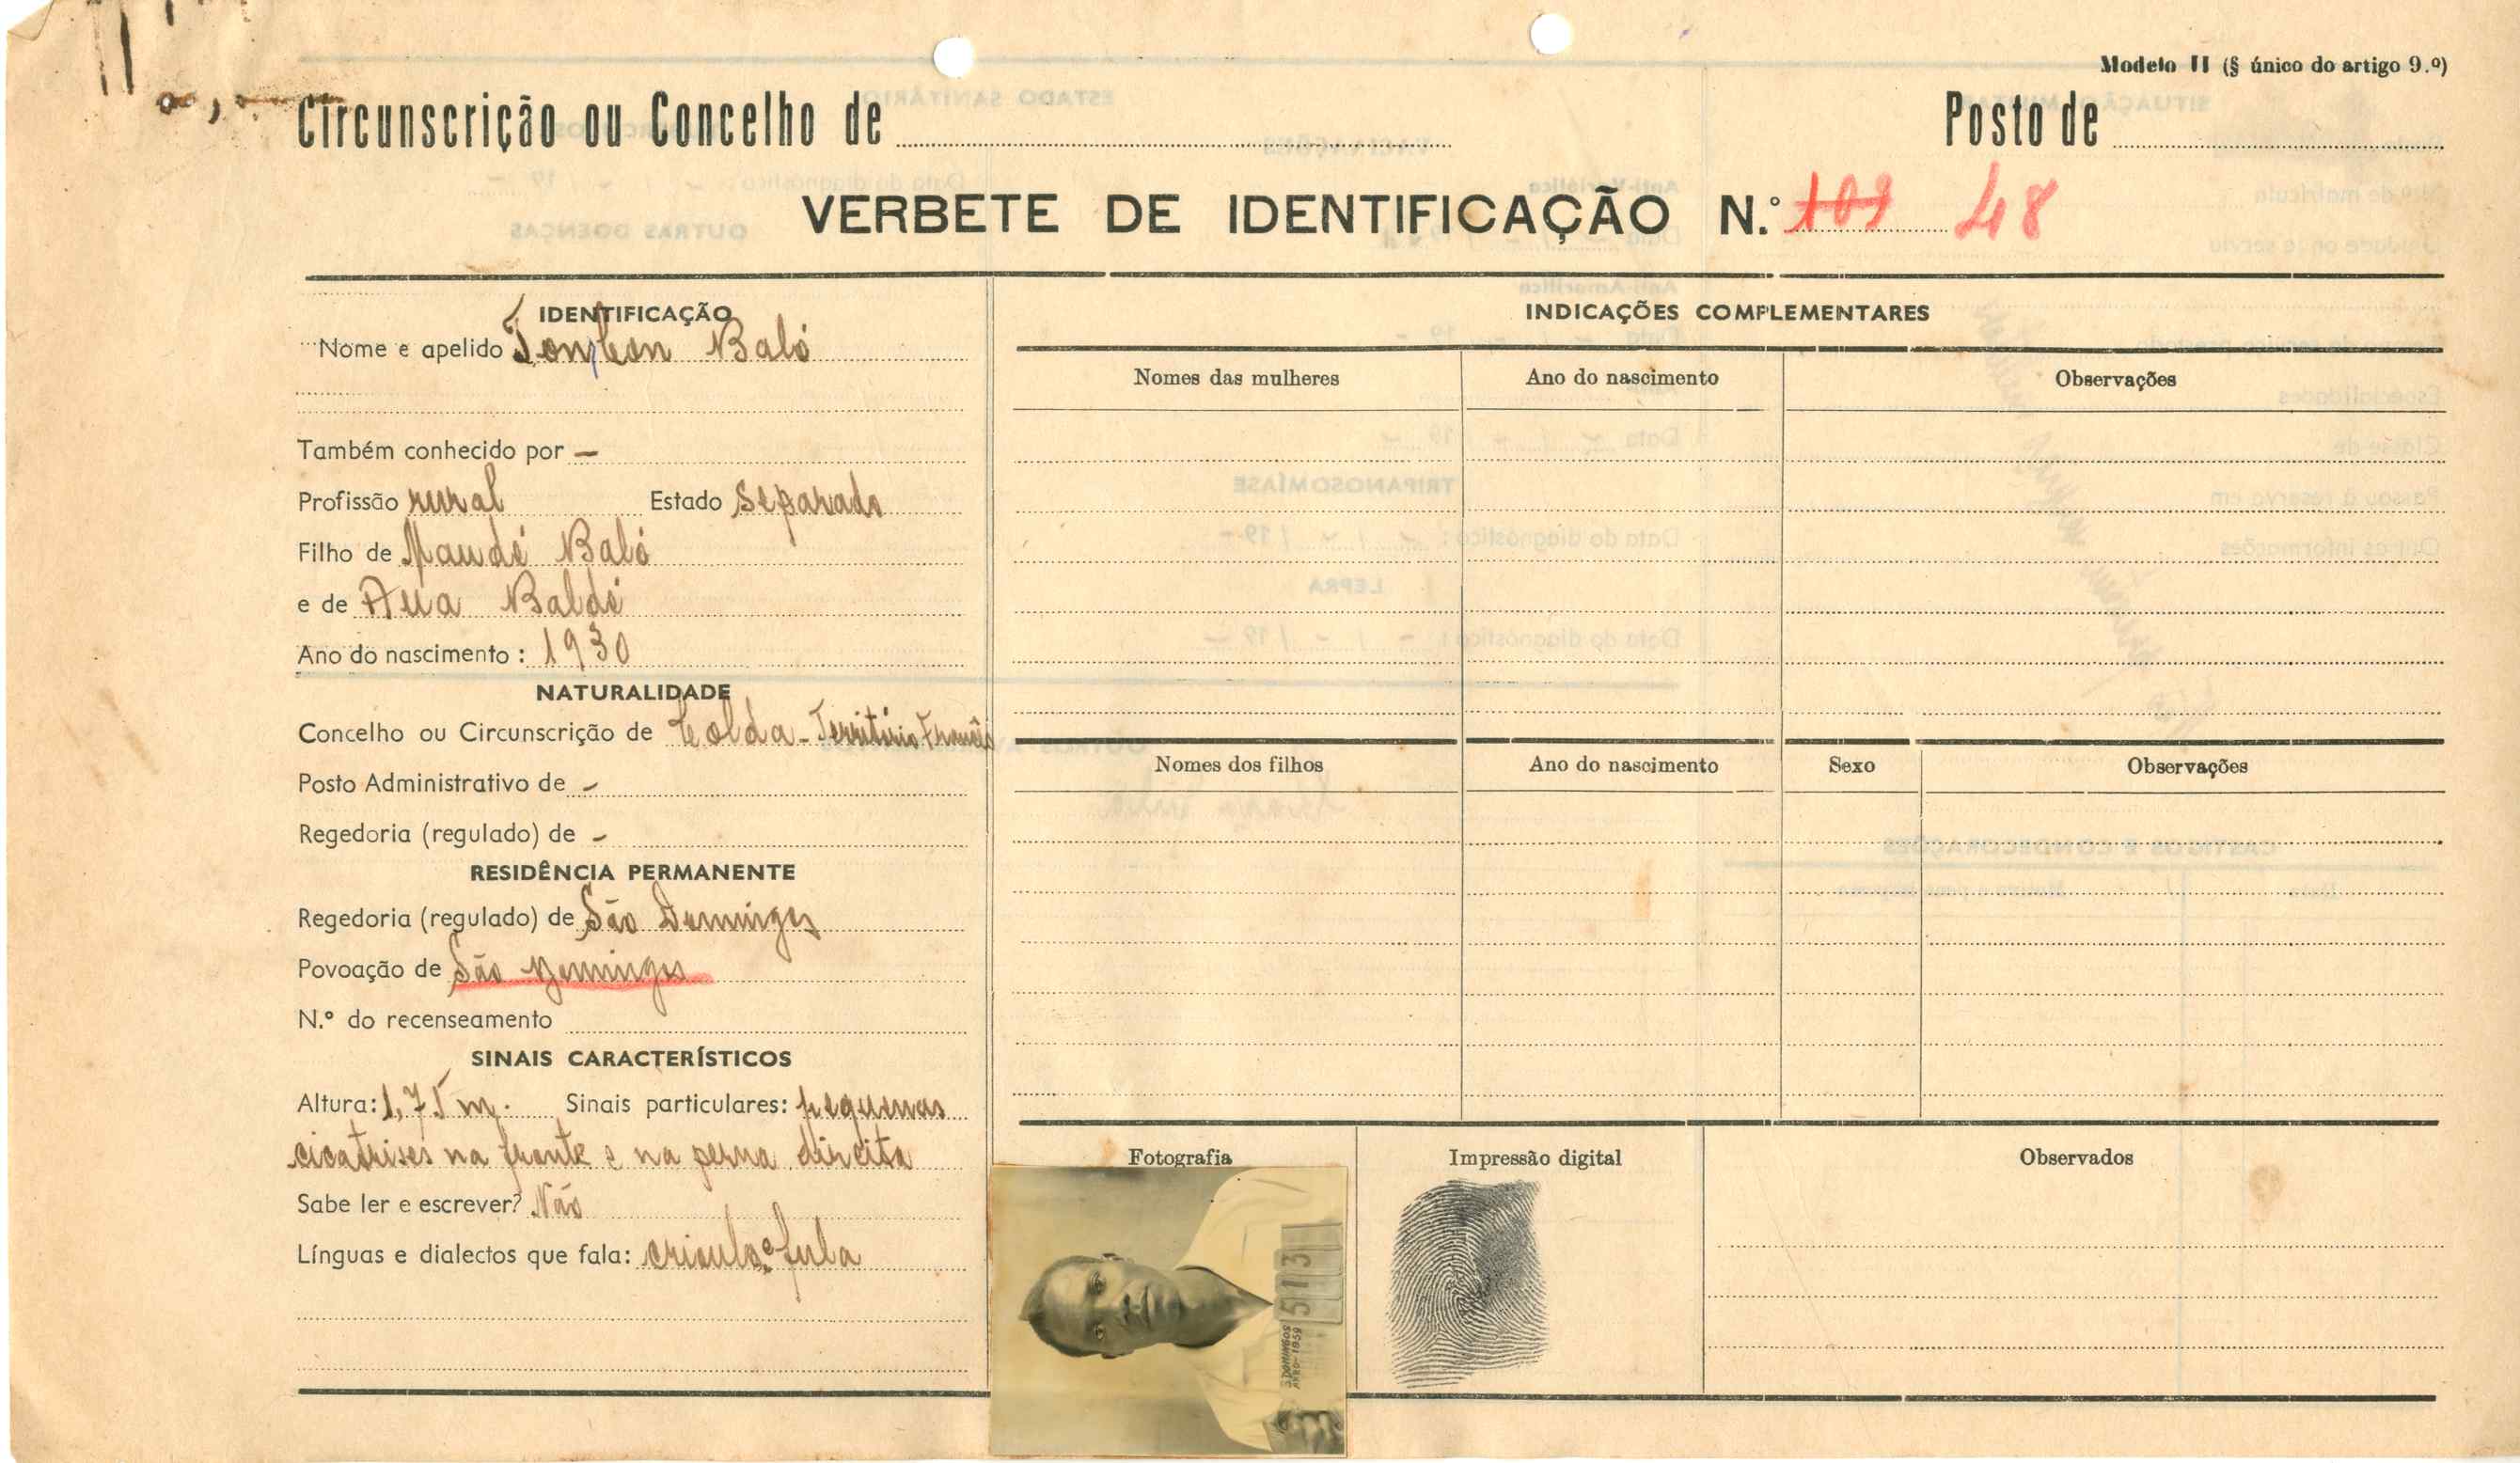 Modelo II (§ único do artigo 9.º)
Circunscrição ou Concelho de
Posto de
VERBETE DE IDENTIFICAÇÃO N.º 109 48
IDENTIFICAÇÃO
Nome e apelido Baló
Também conhecido por –
Profissão rural Estado separado
Filho de Maudé Baló
e de Aua Baldé
Ano do nascimento : 1930
NATURALIDADE
Concelho ou Circunscrição de Colda - Território Francês
Posto Administrativo de –
Regedoria (regulado) de –
RESIDÊNCIA PERMANENTE
Regedoria (regulado) de São Domingos
Povoação de São Domingos
N.º do recenseamento
SINAIS CARACTERÍSTICOS
Altura: 1,75 m. Sinais particulares: pequenas
cicatrises na fronte e na perna direita
Sabe ler e escrever? Não
Línguas e dialectos que fala: crioulo e fula
INDICAÇÕES COMPLEMENTARES
Nomes das mulheres
Ano do nascimento
Observações
Nomes dos filhos
Ano do nascimento
Sexo
Observações
Fotografia
Impressão digital
Observados
S.DOMINGOS
ANRO-1959
513